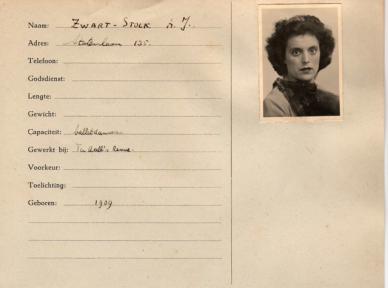 Naam: ZWART - STOCK L. J.
Adres: 135.
Telefoon:
Godsdienst:
Lengte:
Gewicht:
Capaciteit: balletdanseres
Gewerkt bij: revue
Voorkeur:
Toelichting:
Geboren: 1909